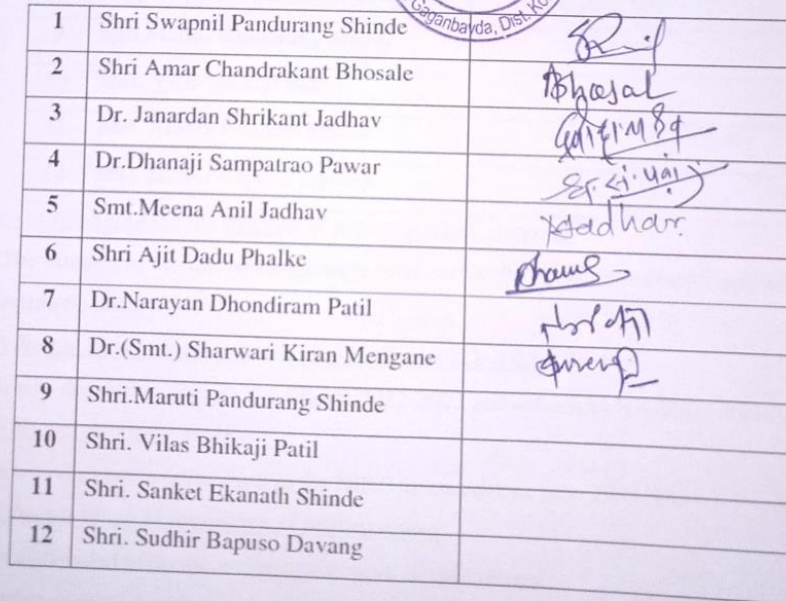 Gaganbavda, Dist. Ko
1 Shri Swapnil Pandurang Shinde
2 Shri Amar Chandrakant Bhosale Bhosal
3 Dr. Janardan Shrikant Jadhav
4 Dr.Dhanaji Sampatrao Pawar
5 Smt.Meena Anil Jadhav Jadhav.
6 Shri Ajit Dadu Phalke
7 Dr.Narayan Dhondiram Patil
8 Dr.(Smt.) Sharwari Kiran Mengane
9 Shri.Maruti Pandurang Shinde
10 Shri. Vilas Bhikaji Patil
11 Shri. Sanket Ekanath Shinde
12 Shri. Sudhir Bapuso Davang